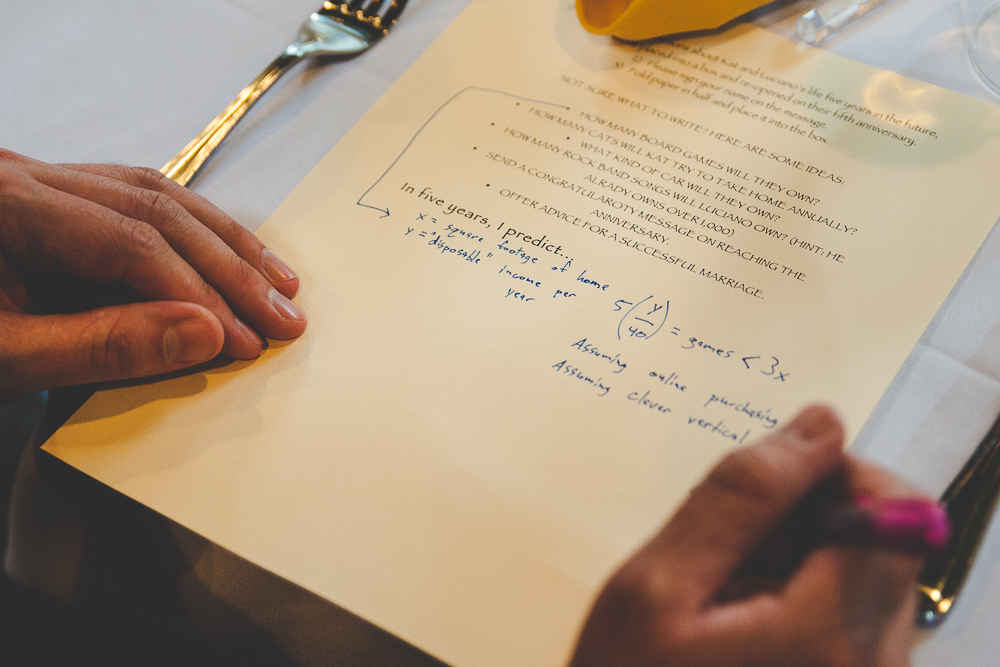 about Kat and Luciano's life five years in the future,
placed into a box and re-opened on their fifth anniversary.
Please sign your name on the message.
Fold paper in half and place it into the box.
NOT SURE WHAT TO WRITE? HERE ARE SOME IDEAS:
• HOW MANY BOARD GAMES WILL THEY OWN?
• HOW MANY CATS WILL KAT TRY TO TAKE HOME ANNUALLY?
• WHAT KIND OF CAR WILL THEY OWN?
• HOW MANY ROCK BAND SONGS WILL LUCIANO OWN? (HINT: HE
ALRADY OWNS OVER 1,000)
• SEND A CONGRATULAROTY MESSAGE ON REACHING THE
ANNIVERSARY.
• OFFER ADVICE FOR A SUCCESSFUL MARRIAGE.
In five years, I predict...
x = square footage of home
y = "disposable" income per
year
5(y/40) = games < 3x
Assuming online purchasing
Assuming clever vertical